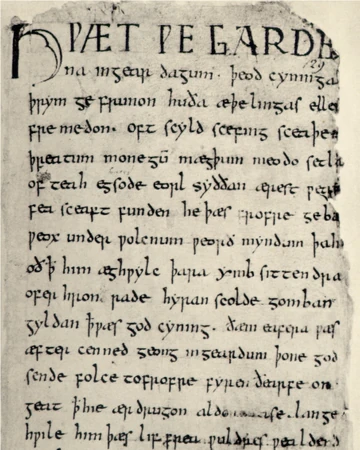 HǷÆT ǷE GARDE
na ingear dagum. þeod cyninga
þrym ge frunon huða æþelingas elle
fremedon. oft scyld scefing sceaþe
þreatum monegū mægþum meodo setla
of teah egsode eorl syððan ærest
fea sceaft funden he þæs frofre geba
ƿeox under ƿolcnum ƿeorð myndum þah
oð þ him æghƿylc þara ymb sittendra
ofer hron rade hyran scolde gomban
gyldan þæs god cyning. ðæm eafera ƿæs
æfter cenned geong ingeardum þone god
sende folce tofrofre fyren ðearfe on
geat þhie ær drugon aldor ase. lange
hƿile him þæs lif frea ƿuldres ƿealdend
129